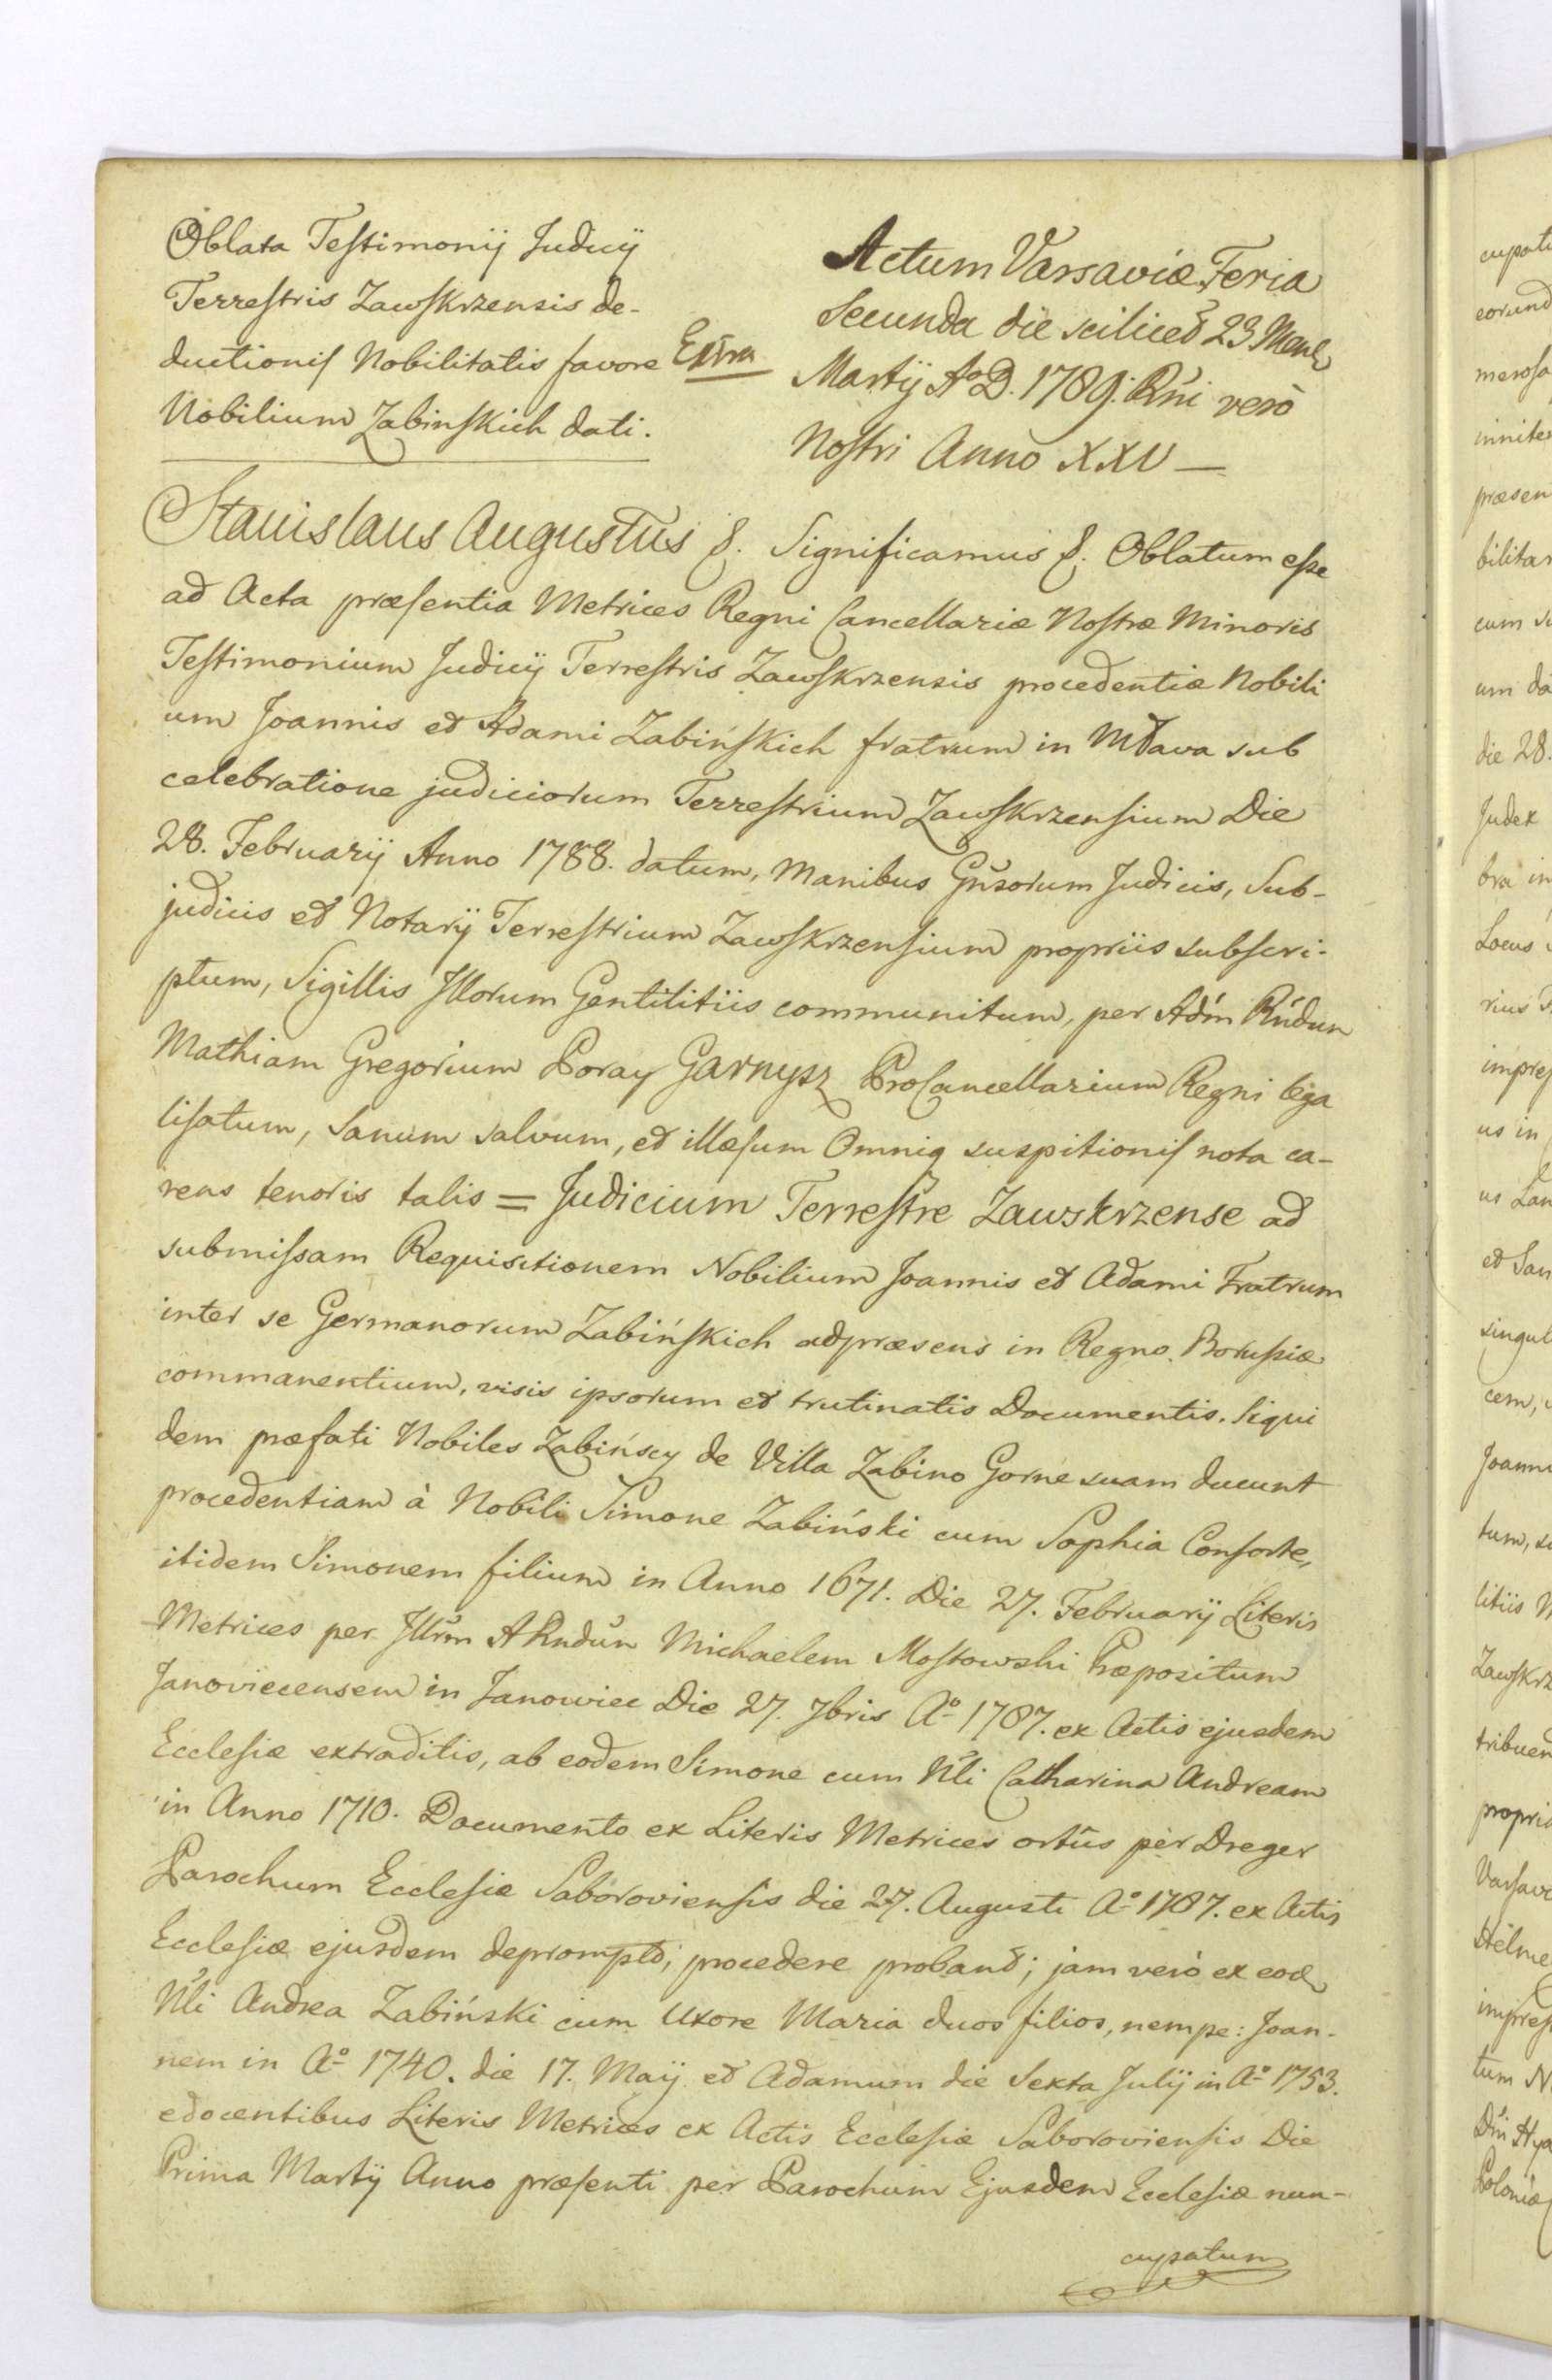 Oblata Testimonij Judicij
Terrestris Zawskrzensis de-
ductionis Nobilitatis favore
Nobilium Zabinskich dati.
Extra
Actum Varsaviæ Feria
Secunda die scilicet 23 Mens
Martij Aº D. 1789. Rni verò
Nostri Anno XXV —
Stanislaus Augustus &. Significamus &. Oblatum esse
ad Acta præsentia Metrices Regni Cancellariæ Nostræ Minoris
Testimonium Judicij Terrestris Zawskrzensis procedentiæ Nobili
um Joannis et Adami Zabińskich fratrum in Mława sub
celebratione judiciorum Terrestrium Zawskrzensium Die
28. Februarij Anno 1788. datum, Manibus Gnsorum Judicis, Sub-
judicis et Notarij Terrestrium Zawskrzensium propriis subscri-
ptum, Sigillis Illorum Gentilitiis communitum, per Adm Rndum
Mathiam Gregorium Poray Garnysz ProCancellarium Regni lega
lisatum, sanum salvum, et illæsum Omniq suspitionis nota ca-
rens tenoris talis = Judicium Terrestre Zawskrzense ad
submissam Requisitionem Nobilium Joannis et Adami Fratrum
inter se Germanorum Zabińskich adpræsens in Regno Borussiæ
commanentium, visis ipsorum et trutinatis Documentis. Siqui
dem præfati Nobiles Zabińscy de Villa Zabino Gorne suam ducunt
procedentiam à Nobili Simone Zabiński cum Sophia Consorte,
itidem Simonem filium in Anno 1671. Die 27. Februarij Literis
Metrices per Illrm ARndum Michaelem Mostowski Præpositum
Janoviecensem in Janowiec Die 27. 7bris Aº 1787. ex Actis ejusdem
Ecclesiæ extraditis, ab eodem Simone cum Nli Catharina Andream
in Anno 1710. Documento ex Literis Metrices ortûs per Dreger
Parochum Ecclesiæ Saboroviensis die 27. Augusti Aº 1787. ex Actis
Ecclesiæ ejusdem deprompto, procedere proband; jam verò ex eod
Nli Andrea Zabiński cum Uxore Maria duos filios, nempe: Joan-
nem in Aº 1740. die 17. Maij et Adamum die Sexta Julij in Aº 1753.
edocentibus Literis Metrices ex Actis Ecclesiæ Saboroviensis Die
Prima Martij Anno præsenti per Parochum Ejusdem Ecclesiæ nun-
cupatum